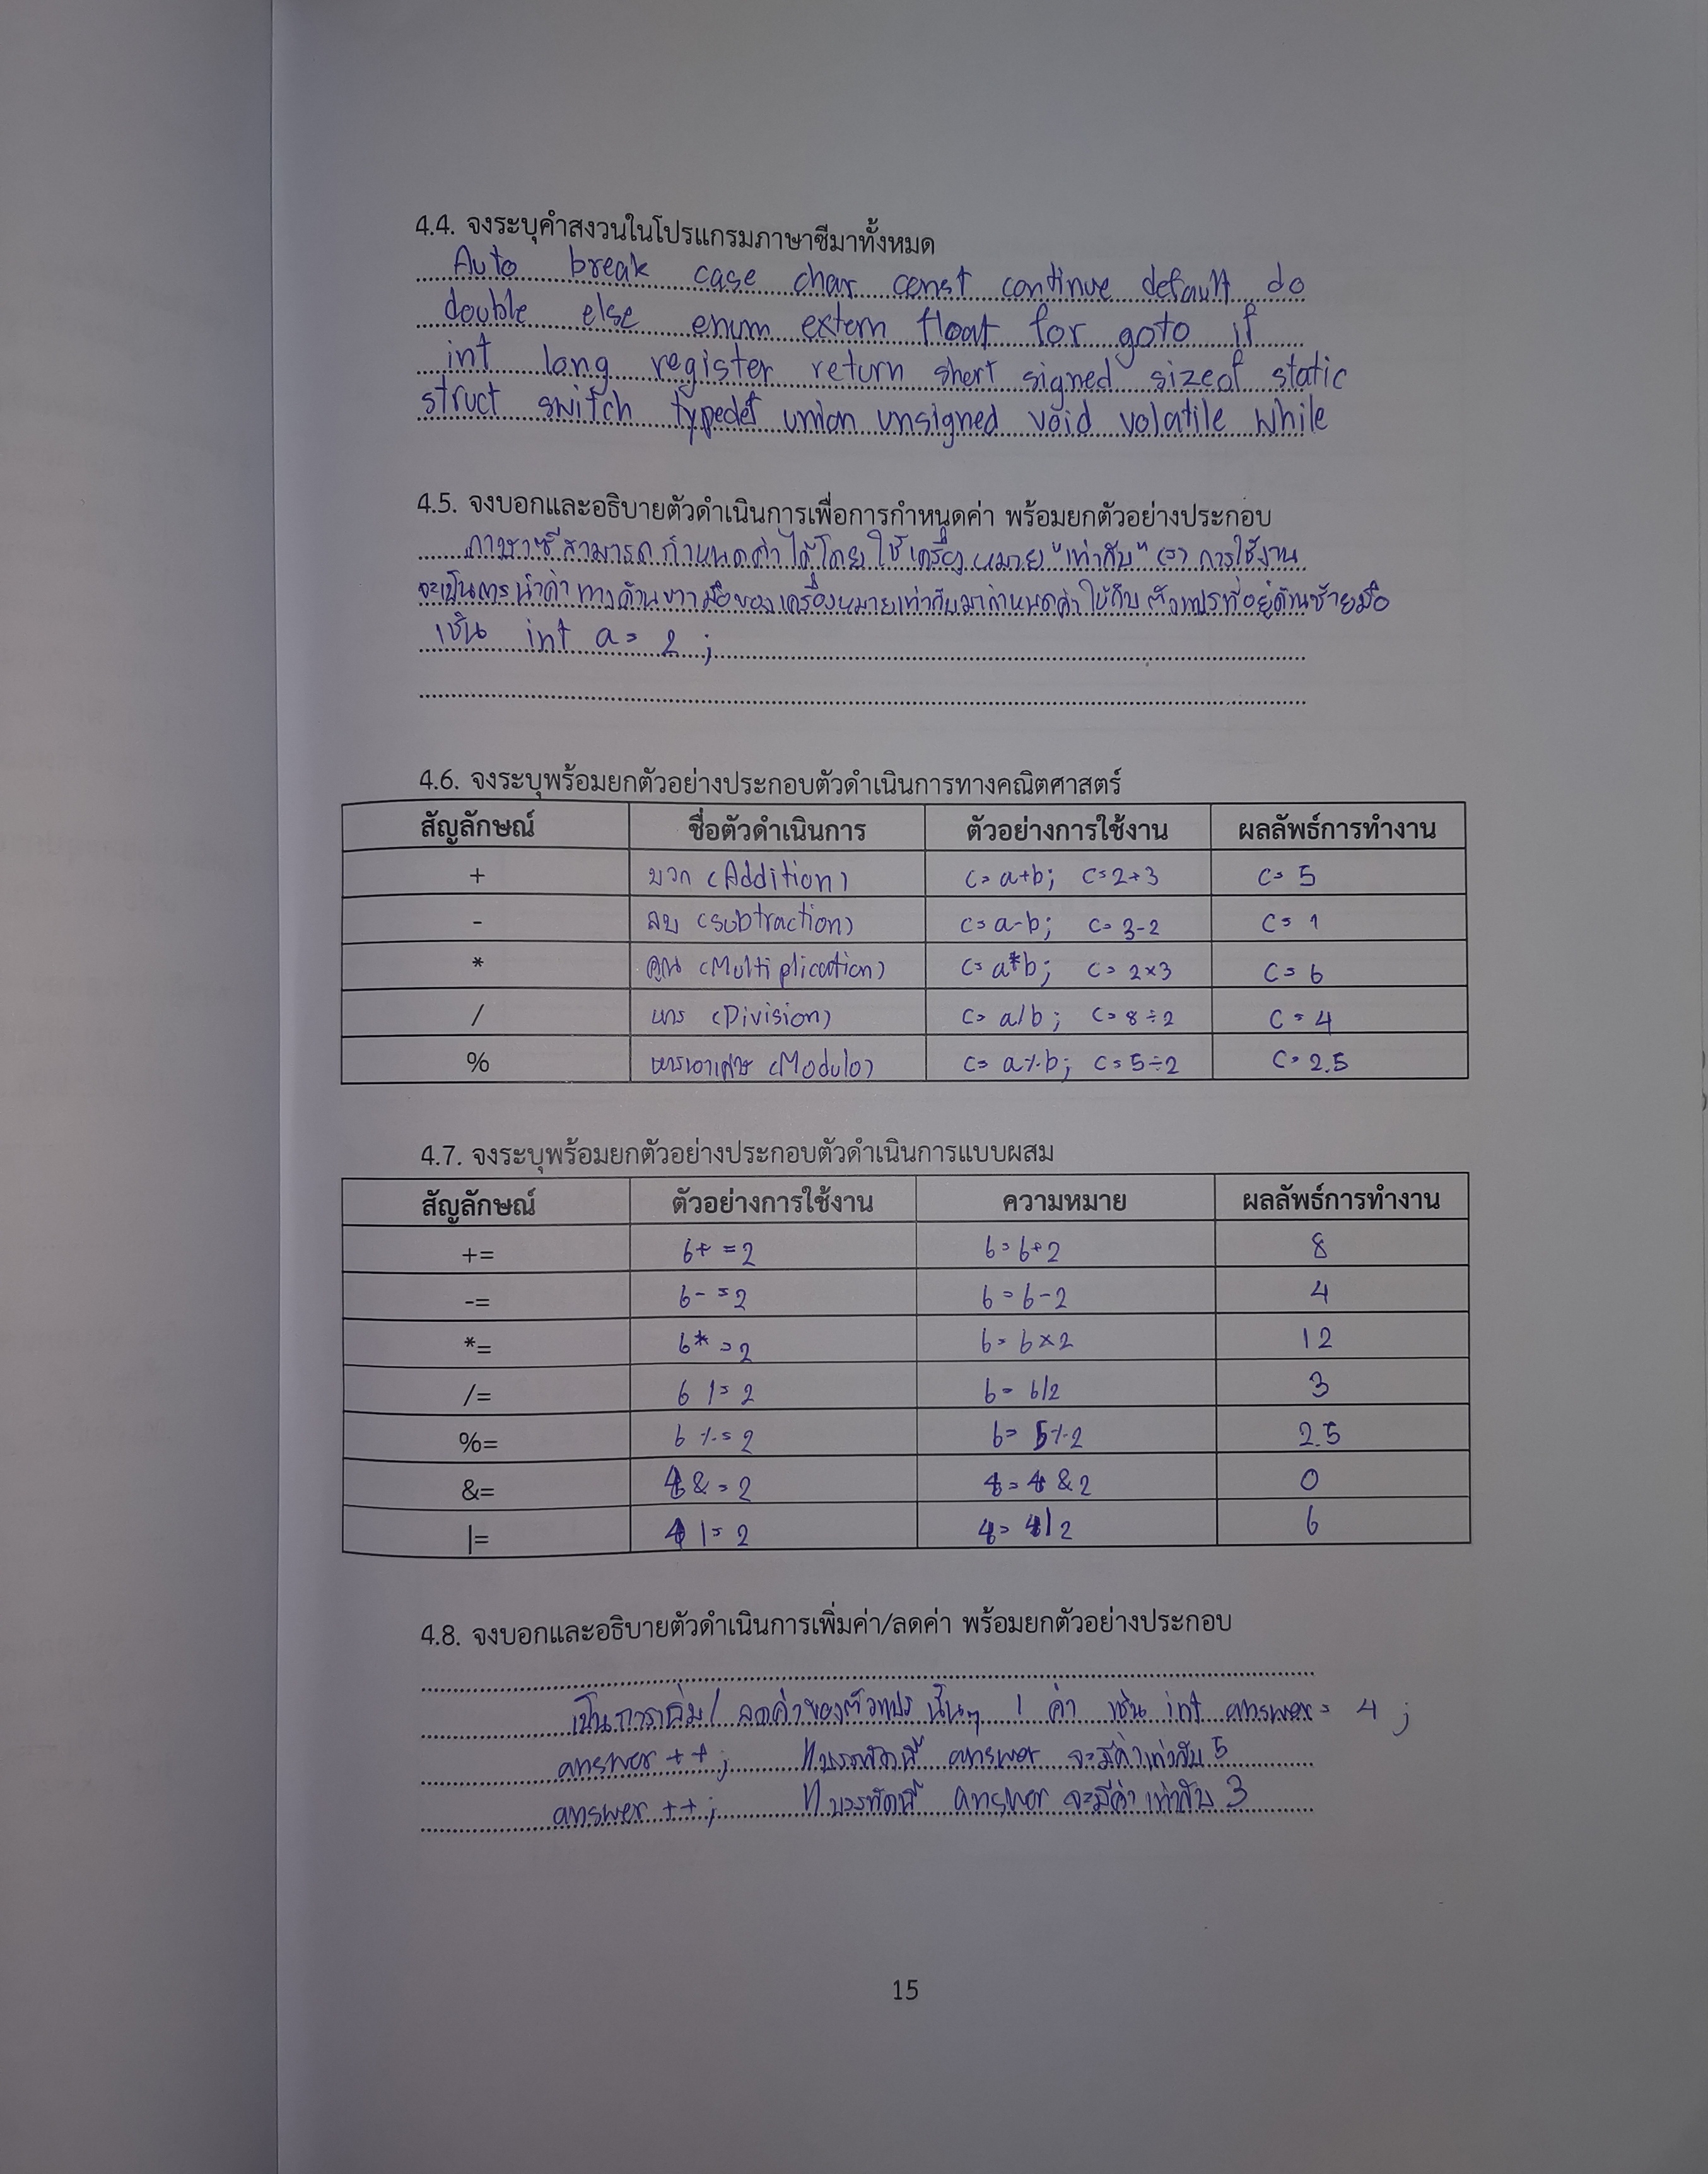 4.4. จงระบุคำสงวนในโปรแกรมภาษาซีมาทั้งหมด
Auto break case char const continue default do
double else enum extern float for goto if
int long register return short signed sizeof static
struct switch typedef union unsigned void volatile while
4.5. จงบอกและอธิบายตัวดำเนินการเพื่อการกำหนดค่า พร้อมยกตัวอย่างประกอบ
ภาษาซีสามารถกำหนดค่าได้โดยใช้เครื่องหมาย "เท่ากับ" (=) การใช้งาน
จะเป็นการนำค่าทางด้านขวามือของเครื่องหมายเท่ากับมากำหนดค่าให้กับตัวแปรที่อยู่ด้านซ้ายมือ
เช่น int a = 2 ;
4.6. จงระบุพร้อมยกตัวอย่างประกอบตัวดำเนินการทางคณิตศาสตร์
สัญลักษณ์ ชื่อตัวดำเนินการ ตัวอย่างการใช้งาน ผลลัพธ์การทำงาน
+ บวก (Addition) c = a+b; c = 2+3 c = 5
- ลบ (subtraction) c = a-b; c = 3-2 c = 1
* คูณ (Multiplication) c = a*b; c = 2×3 c = 6
/ หาร (Division) c = a/b; c = 8÷2 c = 4
% หารเอาเศษ (Modulo) c = a%b; c = 5÷2 c = 2.5
4.7. จงระบุพร้อมยกตัวอย่างประกอบตัวดำเนินการแบบผสม
สัญลักษณ์ ตัวอย่างการใช้งาน ความหมาย ผลลัพธ์การทำงาน
+= 6+ =2 6=6+2 8
-= 6- =2 6=6-2 4
*= 6* =2 6= 6×2 12
/= 6 /= 2 6= 6/2 3
%= 6 %= 2 6= 5%2 2.5
&= 4 &= 2 4= 4 &2 0
|= 4 |= 2 4= 4|2 6
4.8. จงบอกและอธิบายตัวดำเนินการเพิ่มค่า/ลดค่า พร้อมยกตัวอย่างประกอบ
เป็นการเพิ่ม/ ลดค่าของตัวแปร นั้นๆ 1 ค่า เช่น int answer = 4 ;
answer ++; // บรรทัดนี้ answer จะมีค่าเท่ากับ 5
answer ++; // บรรทัดนี้ answer จะมีค่าเท่ากับ 3
15